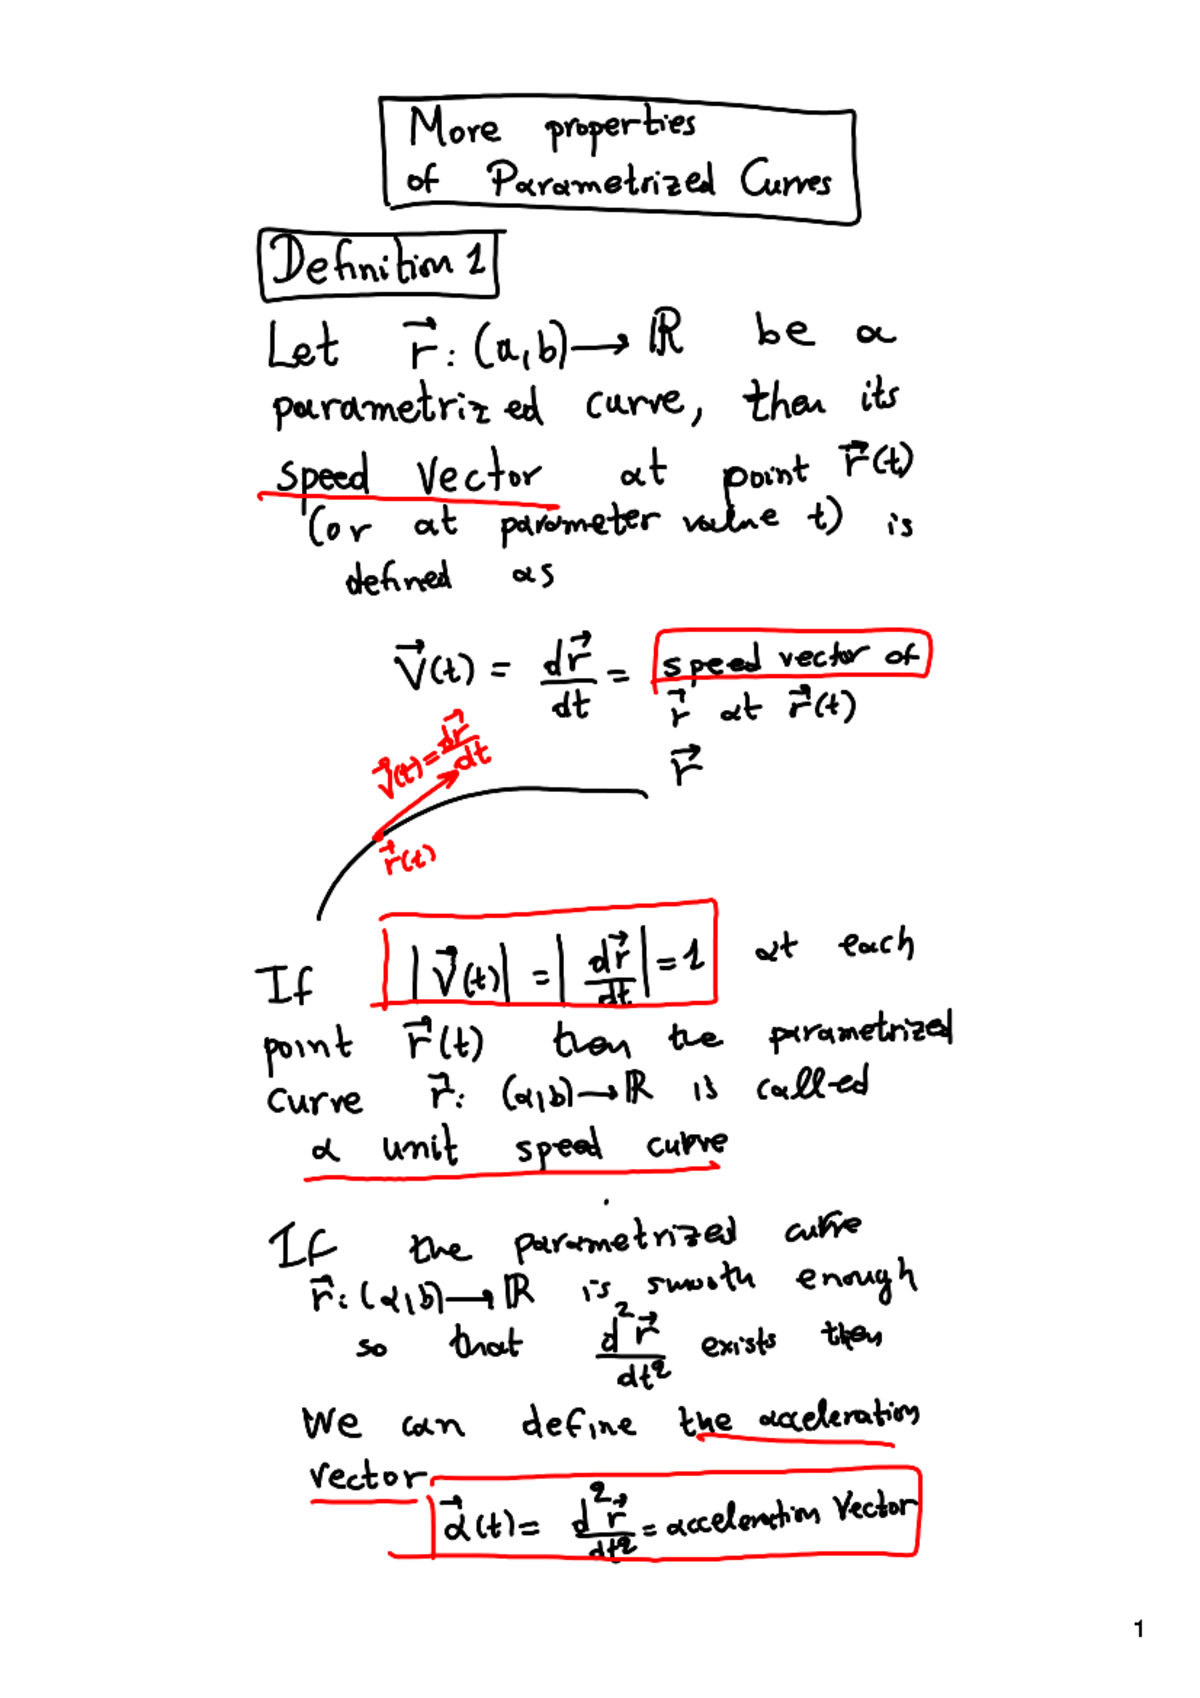 More properties
of Parametrized Curves
Definition 1
Let r⃗: (a,b)→ℝ be a
parametrized curve, then its
speed vector at point r⃗(t)
(or at parameter value t) is
defined as
V⃗(t) = dr⃗/dt = speed vector of
r⃗ at r⃗(t)
V⃗(t) = dr⃗/dt
r⃗
r⃗(t)
If |V⃗(t)| = |dr⃗/dt| = 1 at each
point r⃗(t) then the parametrized
curve r⃗: (a,b)→ℝ is called
a unit speed curve
If the parametrized curve
r⃗: (a,b)→ℝ is smooth enough
so that d²r⃗/dt² exists then
We can define the acceleration
vector
a⃗(t) = d²r⃗/dt² = acceleration Vector
1